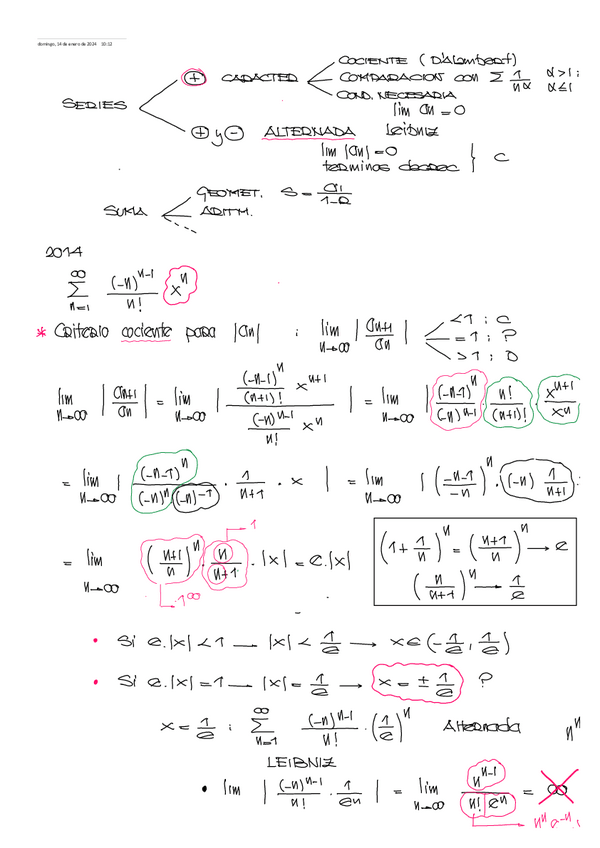 domingo, 14 de enero de 2024 10:12
SERIES
+ CARÁCTER
COCIENTE (D'Alembert)
COMPARACION CON Σ 1/n^α α>1 : α≤1
COND. NECESARIA
lim an = 0
+ y - ALTERNADA Leibniz
lim |an| = 0
terminos decrec } C
SUMA
GEOMET. S = a1/(1-R)
ARITM.
2014
∞ Σ n=1 (-n)^(n-1)/n! x^n
* Criterio cociente para |an| : lim n→∞ |an+1/an| <1 : C
=1 : ?
>1 : D
lim n→∞ |an+1/an| = lim n→∞ | ((-n-1)^n/(n+1)! x^(n+1)) / ((-n)^(n-1)/n! x^n) | = lim n→∞ | (-n-1)^n/(-n)^(n-1) · n!/(n+1)! · x^(n+1)/x^n
= lim n→∞ | (-n-1)^n/((-n)^n (-n)^-1) · 1/(n+1) · x | = lim n→∞ | ((-n-1)/(-n))^n · (-n) 1/(n+1) ·
= lim n→∞ ((n+1)/n)^n · n/(n+1) · |x| = e·|x|
1
1^∞
(1 + 1/n)^n = ((n+1)/n)^n → e
(n/(n+1))^n → 1/e
• Si e.|x| < 1 — |x| < 1/e → x ∈ (-1/e, 1/e)
• Si e.|x| = 1 — |x| = 1/e → x = ± 1/e ?
x = 1/e : ∞ Σ n=1 (-n)^(n-1)/n! · (1/e)^n Alternada n^n
LEIBNIZ
• lim | (-n)^(n-1)/n! · 1/e^n | = lim n→∞ n^(n-1)/(n! e^n) = ∞